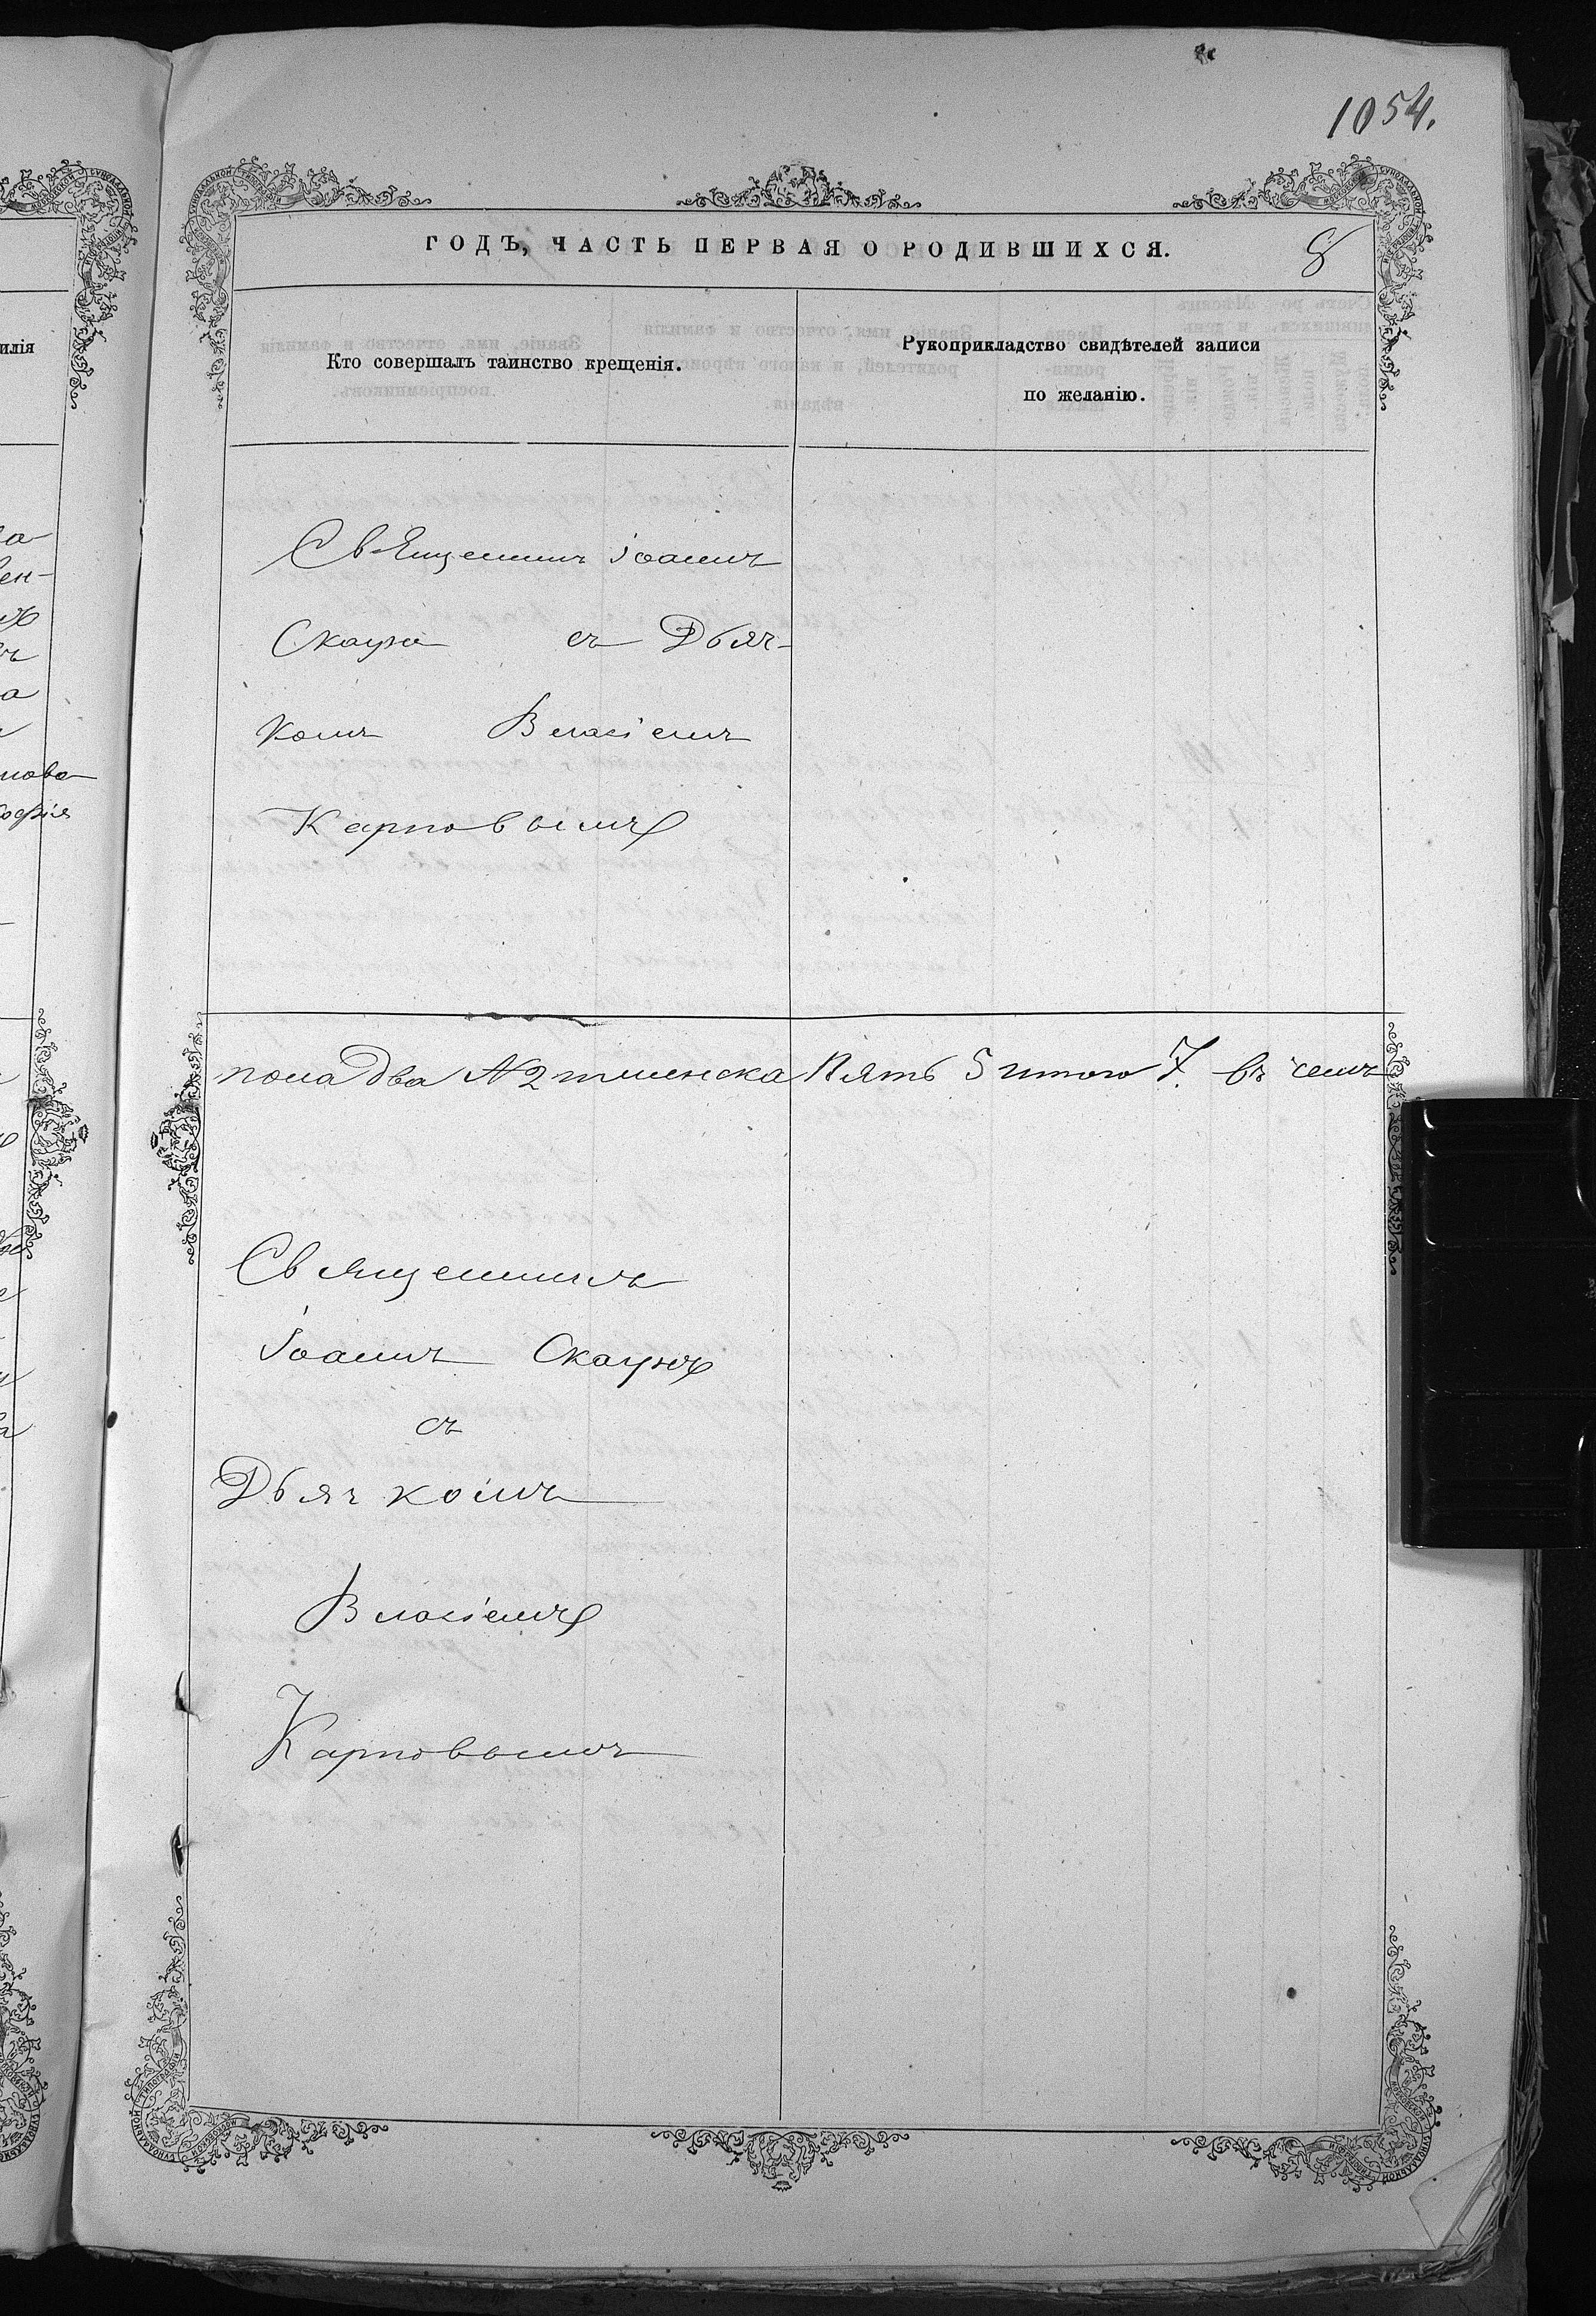 1054.
ГОДЪ, ЧАСТЬ ПЕРВАЯ О РОДИВШИХСЯ.
8
Кто совершалъ таинство крещенія.
Рукоприкладство свидѣтелей записи
по желанію.
Священникъ Іоаннъ
Скаунъ съ Дьяч-
комъ Власіемъ
Карповымъ
пола два № 2 женска Пять 5 итого 7. въ чемъ
Священникъ
Іоаннъ Скаунъ
съ
Дьячкомъ
Власіемъ
Карповымъ
илія